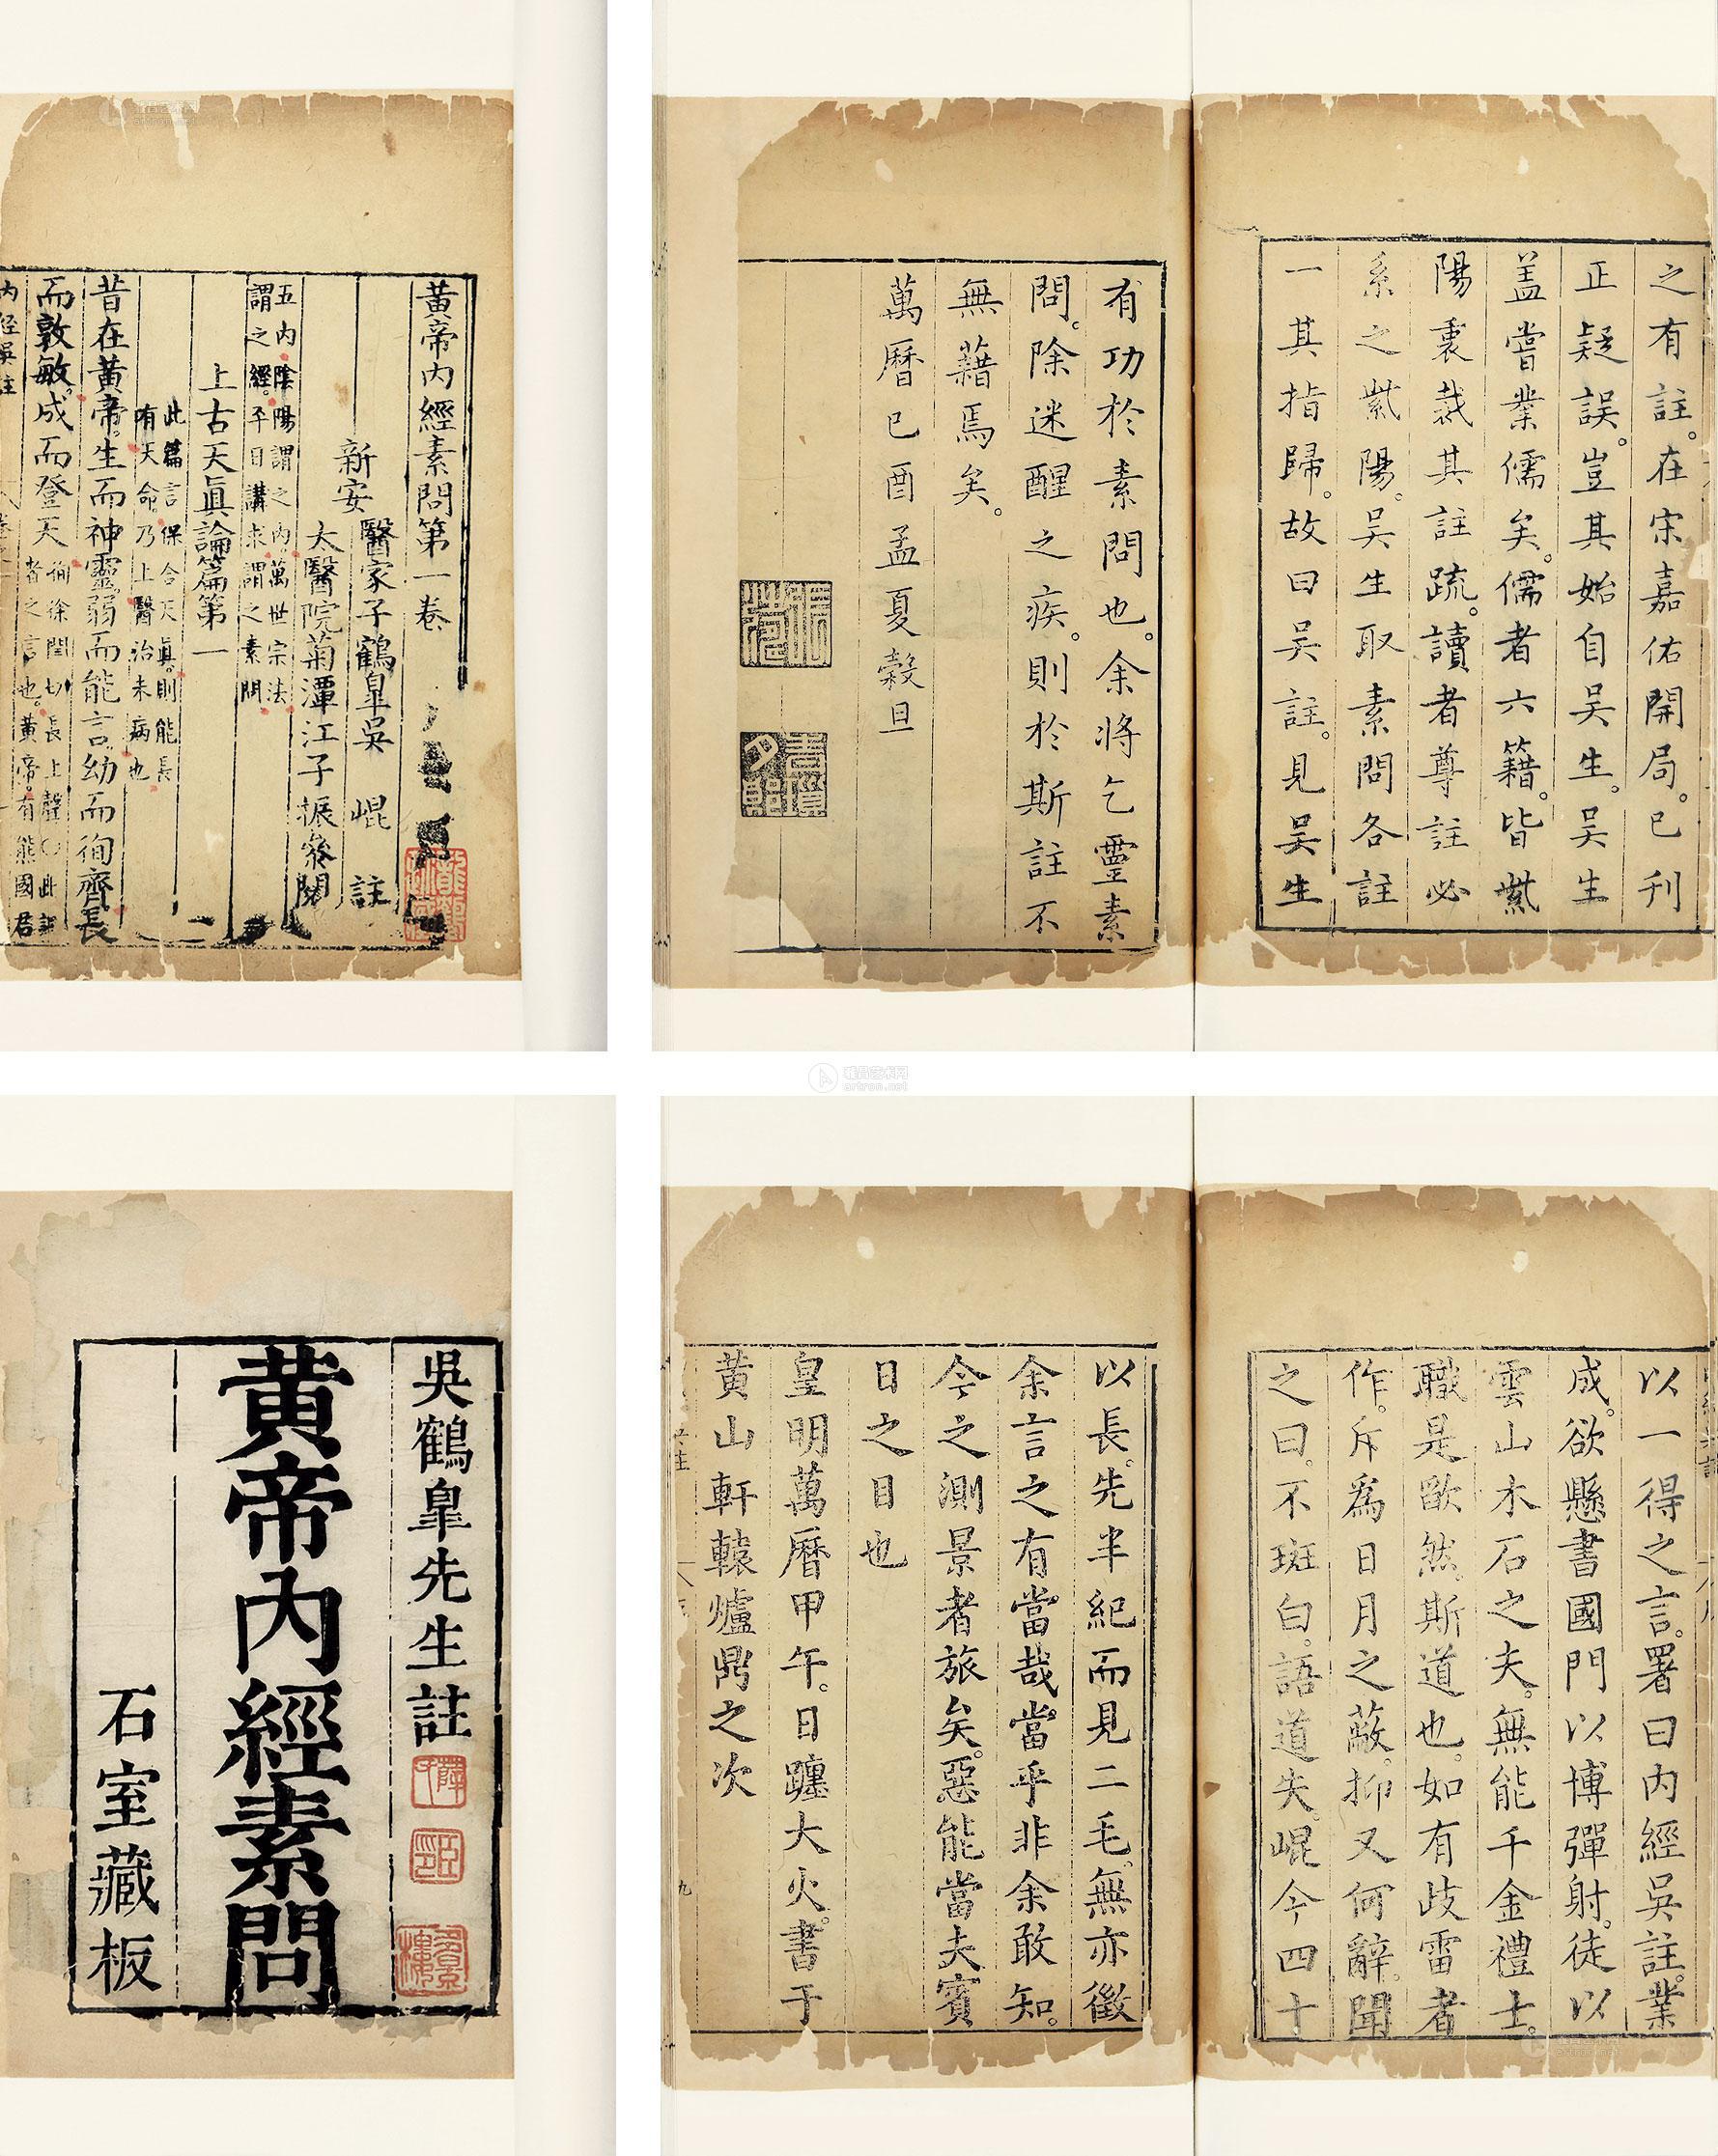 黃帝內經素問第一卷
新安
醫家子鶴臯吳崐註
太醫院菊潭江子振叅閱
五內陰陽謂之內萬世宗法
謂之經平日講求謂之素問
上古天眞論篇第一
此篇言保合天眞則能長
有天命乃上醫治未病也
昔在黃帝生而神靈弱而能言幼而徇齊長
而敦敏成而登天
徇徐閏切長上聲〇此
者之言也黃帝有熊國君
內經吳註
之有註在宋嘉佑開局已刊
正疑誤豈其始自吳生吳生
盖嘗業儒矣儒者六籍皆紫
陽裏裁其註疏讀者尊註必
系之紫陽吳生取素問各註
一其指歸故曰吳註見吳生
有功於素問也余將乞靈素
問除迷醒之疾則於斯註不
無藉焉矣
萬曆己酉孟夏穀旦
吳鶴臯先生註
黃帝內經素問
石室藏板
以一得之言署曰內經吳註業
成欲懸書國門以博彈射徒以
雲山木石之夫無能千金禮士
職是歐然斯道也如有歧雷者
作斥爲日月之蔽抑又何辭聞
之曰不斑白語道失崐今四十
以長先半紀而見二毛無亦徵
余言之有當哉當乎非余敢知
今之測景者旅矣惡能當夫賓
日之日也
皇明萬曆甲午日躔大火書于
黃山軒轅爐鼎之次
雅昌艺术网
artron.net